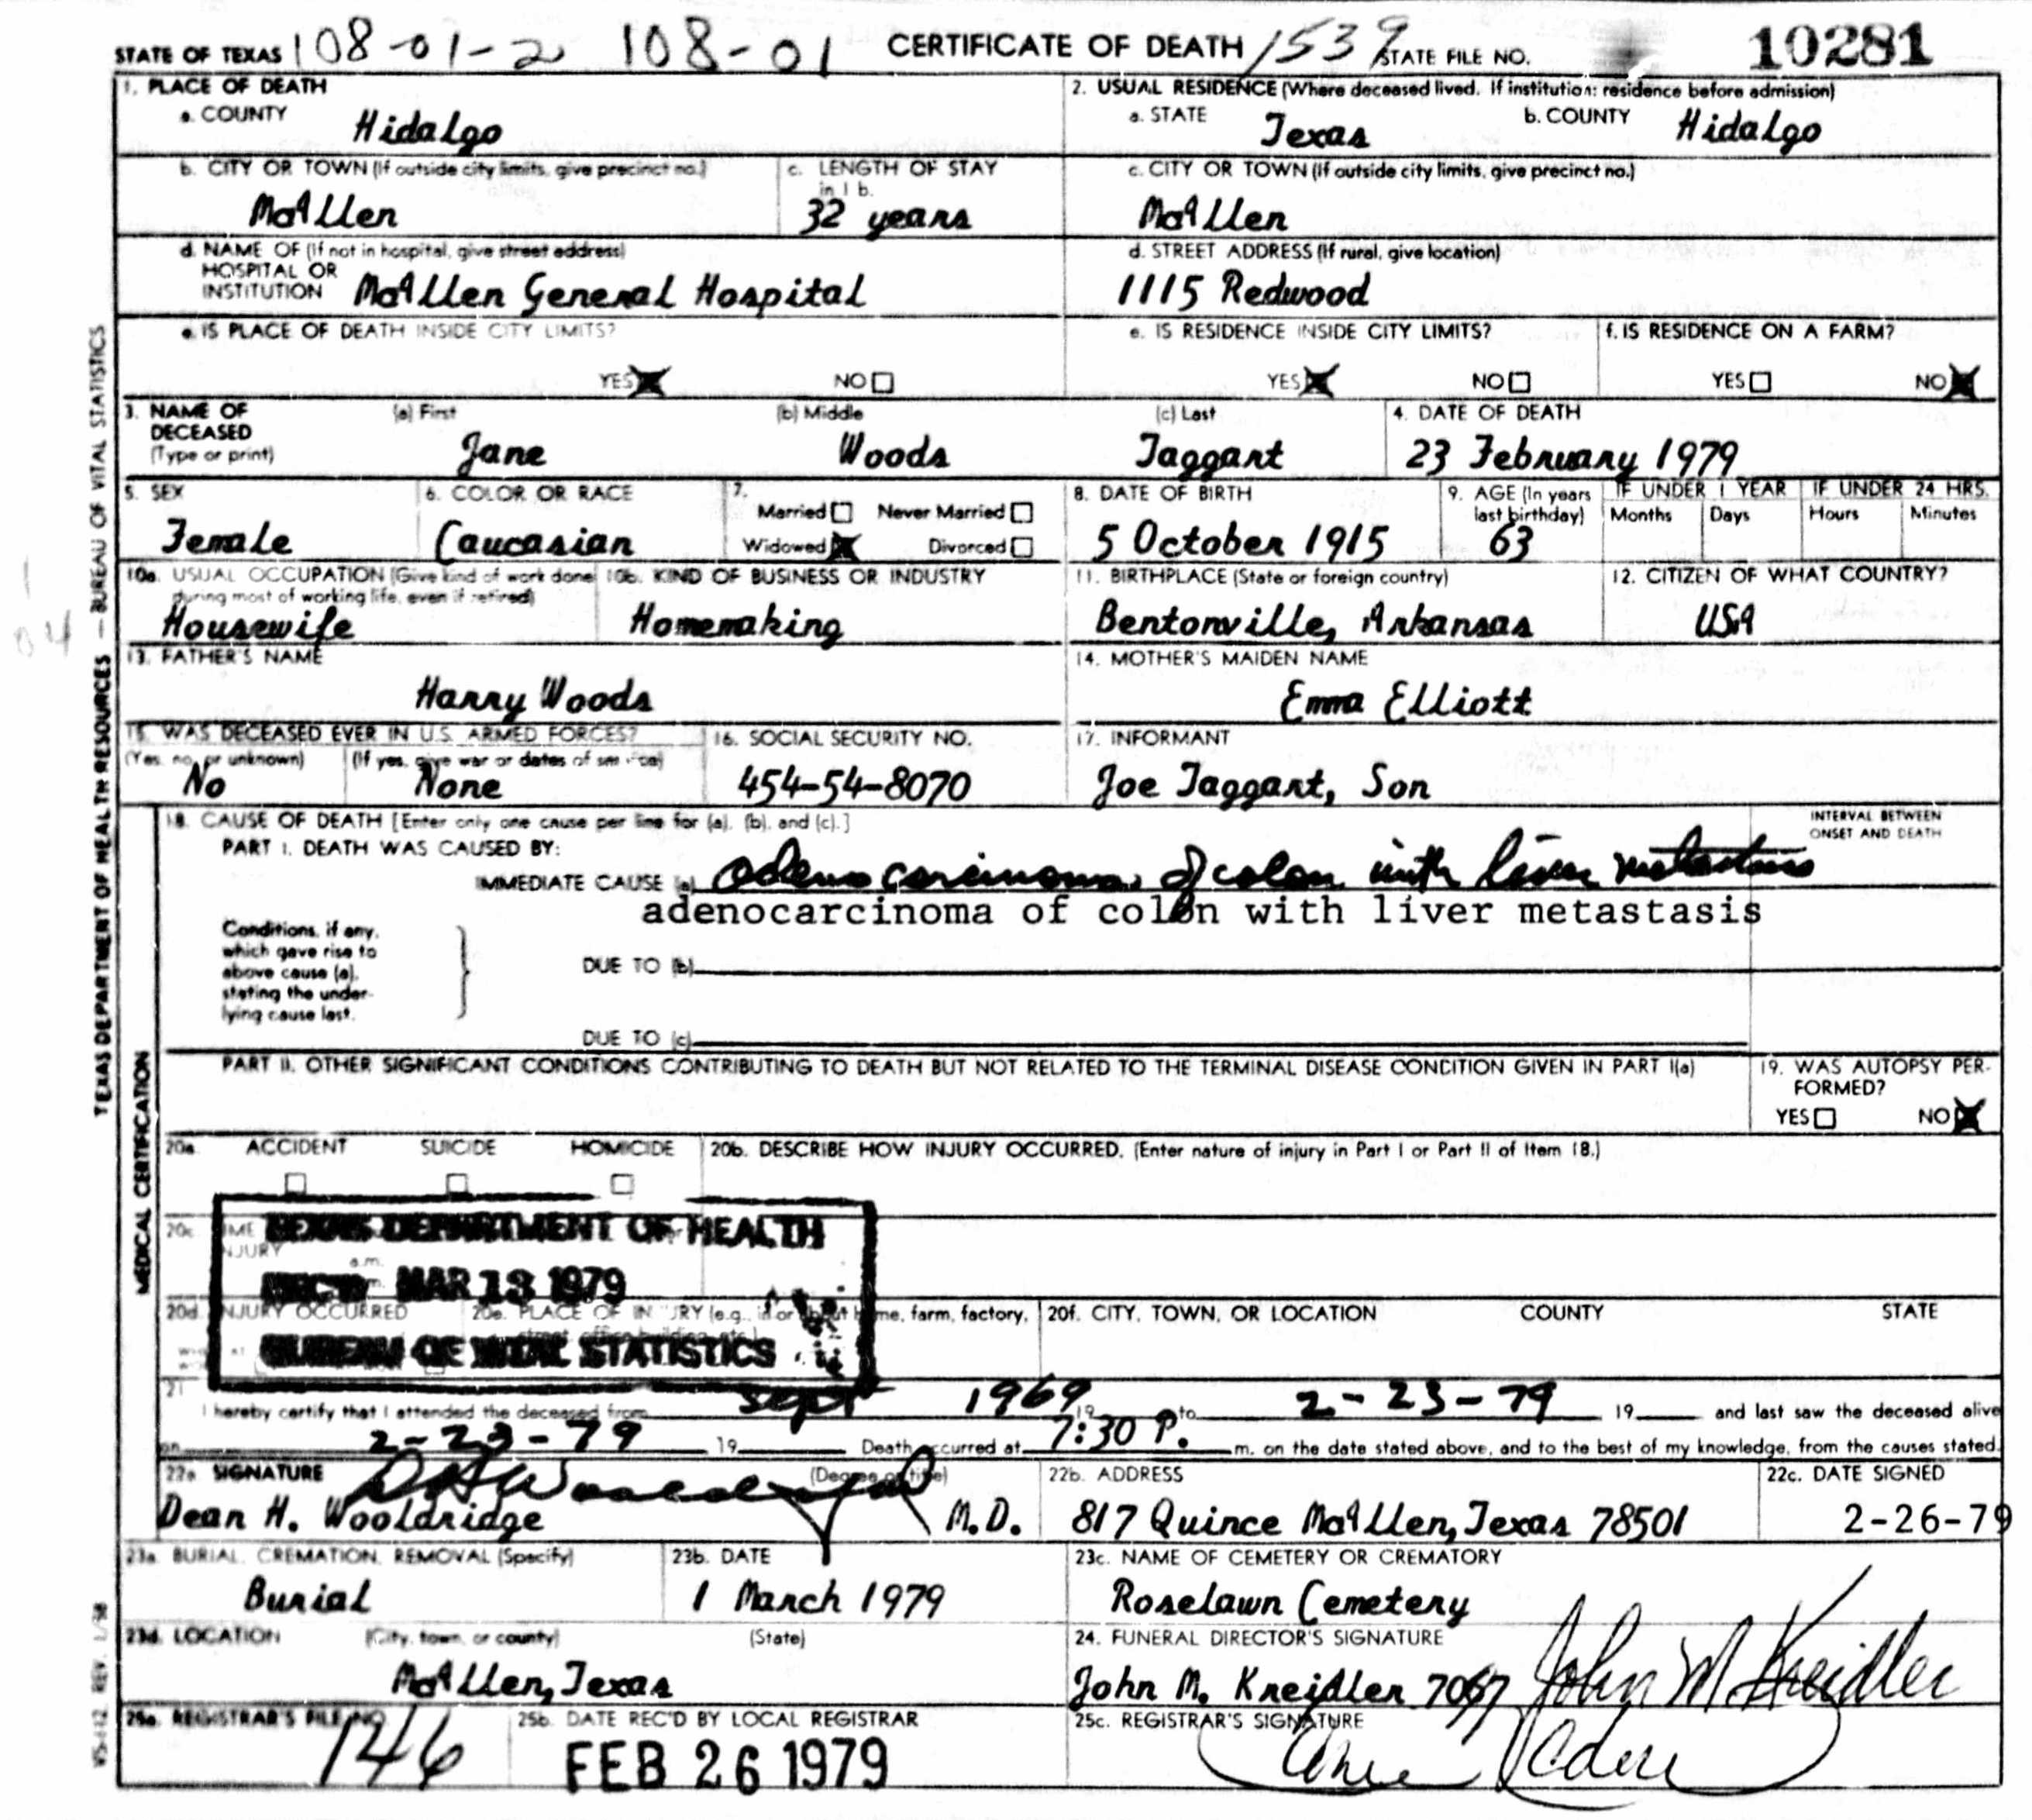 STATE OF TEXAS 108-01-2 108-01 CERTIFICATE OF DEATH 1539 STATE FILE NO. 10281
1. PLACE OF DEATH
2. USUAL RESIDENCE (Where deceased lived. If institution: residence before admission)
a. COUNTY Hidalgo
a. STATE Texas b. COUNTY Hidalgo
b. CITY OR TOWN (If outside city limits, give precinct no.) McAllen
c. LENGTH OF STAY in 1 b. 32 years
c. CITY OR TOWN (If outside city limits, give precinct no.) McAllen
d. NAME OF (If not in hospital, give street address)
HOSPITAL OR
INSTITUTION McAllen General Hospital
d. STREET ADDRESS (If rural, give location)
1115 Redwood
e. IS PLACE OF DEATH INSIDE CITY LIMITS?
YES NO
e. IS RESIDENCE INSIDE CITY LIMITS?
YES NO
f. IS RESIDENCE ON A FARM?
YES NO
3. NAME OF DECEASED (Type or print)
(a) First (b) Middle (c) Last
Jane Woods Taggart
4. DATE OF DEATH
23 February 1979
5. SEX
Female
6. COLOR OR RACE
Caucasian
7.
Married Never Married
Widowed Divorced
8. DATE OF BIRTH
5 October 1915
9. AGE (In years last birthday)
63
IF UNDER 1 YEAR
Months Days
IF UNDER 24 HRS.
Hours Minutes
10a. USUAL OCCUPATION (Give kind of work done
during most of working life, even if retired)
Housewife
10b. KIND OF BUSINESS OR INDUSTRY
Homemaking
11. BIRTHPLACE (State or foreign country)
Bentonville, Arkansas
12. CITIZEN OF WHAT COUNTRY?
USA
13. FATHER'S NAME
Harry Woods
14. MOTHER'S MAIDEN NAME
Emma Elliott
15. WAS DECEASED EVER IN U.S. ARMED FORCES?
(Yes, no, or unknown) (If yes, give war or dates of service)
No None
16. SOCIAL SECURITY NO.
454-54-8070
17. INFORMANT
Joe Taggart, Son
18. CAUSE OF DEATH [Enter only one cause per line for (a), (b), and (c).]
INTERVAL BETWEEN
ONSET AND DEATH
PART I. DEATH WAS CAUSED BY:
IMMEDIATE CAUSE (a) adenocarcinoma of colon with liver metastasis
adenocarcinoma of colon with liver metastasis
Conditions, if any,
which gave rise to
above cause (a),
stating the under-
lying cause last.
DUE TO (b)
DUE TO (c)
PART II. OTHER SIGNIFICANT CONDITIONS CONTRIBUTING TO DEATH BUT NOT RELATED TO THE TERMINAL DISEASE CONDITION GIVEN IN PART I(a)
19. WAS AUTOPSY PER-
FORMED?
YES NO
20a. ACCIDENT SUICIDE HOMICIDE
20b. DESCRIBE HOW INJURY OCCURRED. (Enter nature of injury in Part I or Part II of Item 18.)
20c.
a.m.
TEXAS DEPARTMENT OF HEALTH
REC'D MAR 13 1979
BUREAU OF VITAL STATISTICS
20d. INJURY OCCURRED
20e. PLACE OF INJURY (e.g., in or about home, farm, factory,
street, office building, etc.)
20f. CITY, TOWN, OR LOCATION COUNTY STATE
21
I hereby certify that I attended the deceased from Sept 1969 19 to 2-23-79 19 and last saw the deceased alive
on 2-23-79 19 Death occurred at 7:30 P. m. on the date stated above, and to the best of my knowledge, from the causes stated.
22a. SIGNATURE (Degree or title)
Dean H. Wooldridge M.D.
22b. ADDRESS
817 Quince McAllen, Texas 78501
22c. DATE SIGNED
2-26-79
23a. BURIAL, CREMATION, REMOVAL (Specify)
Burial
23b. DATE
1 March 1979
23c. NAME OF CEMETERY OR CREMATORY
Roselawn Cemetery
23d. LOCATION (City, town, or county) (State)
McAllen, Texas
24. FUNERAL DIRECTOR'S SIGNATURE
John M. Kreidler 7067 John M Kreidler
25a. REGISTRAR'S FILE NO.
146
25b. DATE REC'D BY LOCAL REGISTRAR
FEB 26 1979
25c. REGISTRAR'S SIGNATURE
TEXAS DEPARTMENT OF HEALTH RESOURCES — BUREAU OF VITAL STATISTICS
MEDICAL CERTIFICATION
VS-112 REV. 1/58